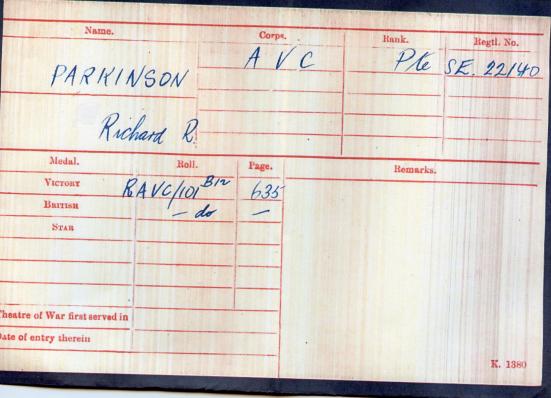 Name. Corps. Rank. Regtl. No.
PARKINSON A V C Pte SE. 22140
Richard R.
Medal. Roll. Page. Remarks.
VICTORY RAVC/101 B12 635
BRITISH – do –
STAR
Theatre of War first served in
Date of entry therein
K. 1380